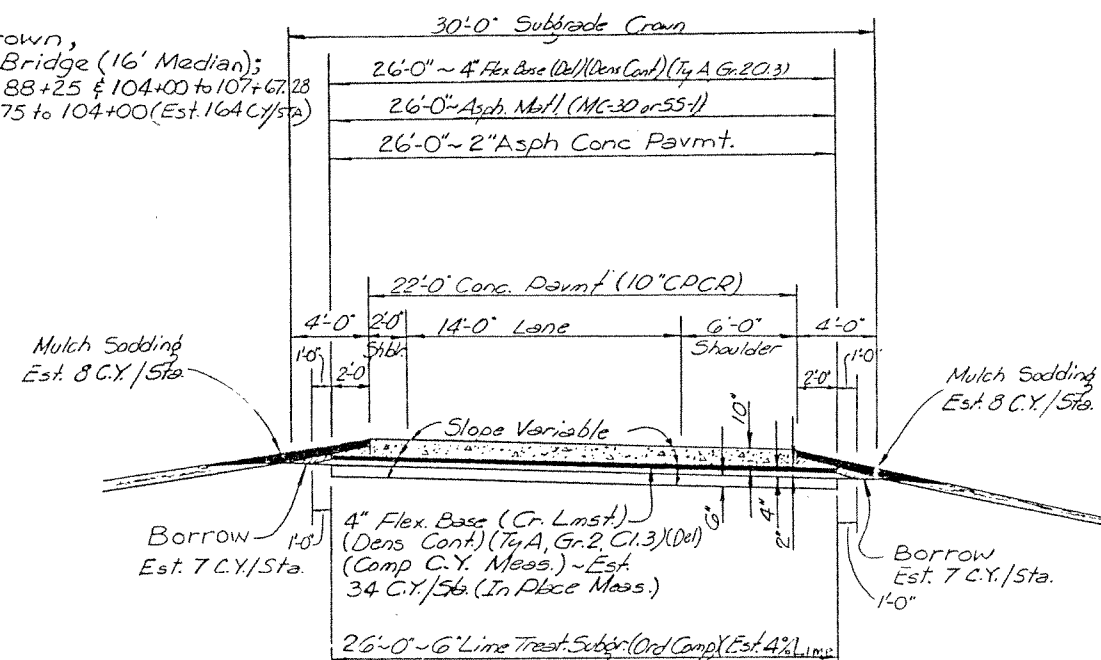 30'-0" Subgrade Crown
rown,
Bridge (16' Median);
88+25 & 104+00 to 107+67.28
75 to 104+00 (Est. 164 CY/STA)
26'-0" ~ 4" Flex Base (Del)(Dens Cont)(Ty A Gr.2 Cl.3)
26'-0" ~ Asph. Mat'l. (MC-30 or SS-1)
26'-0" ~ 2" Asph Conc Pavmt.
22'-0" Conc. Pavm't (10" CPCR)
4'-0" 2'-0" 14'-0" Lane 6'-0" 4'-0"
Shldr. Shoulder
Mulch Sodding
Est. 8 C.Y./Sta.
1'-0" 2'-0 2'-0" 1'-0"
Mulch Sodding
Est. 8 C.Y./Sta.
Slope Variable
10"
6" 4" 2"
Borrow
Est. 7 C.Y./Sta.
1'-0"
4" Flex. Base (Cr. Lmst.)
(Dens Cont.) (Ty A, Gr.2, Cl.3)(Del)
(Comp C.Y. Meas.) ~ Est.
34 C.Y./Sta. (In Place Meas.)
Borrow
Est. 7 C.Y./Sta.
1'-0"
26'-0" ~ 6" Lime Treat. Subgr. (Ord Comp)(Est. 4% Lime